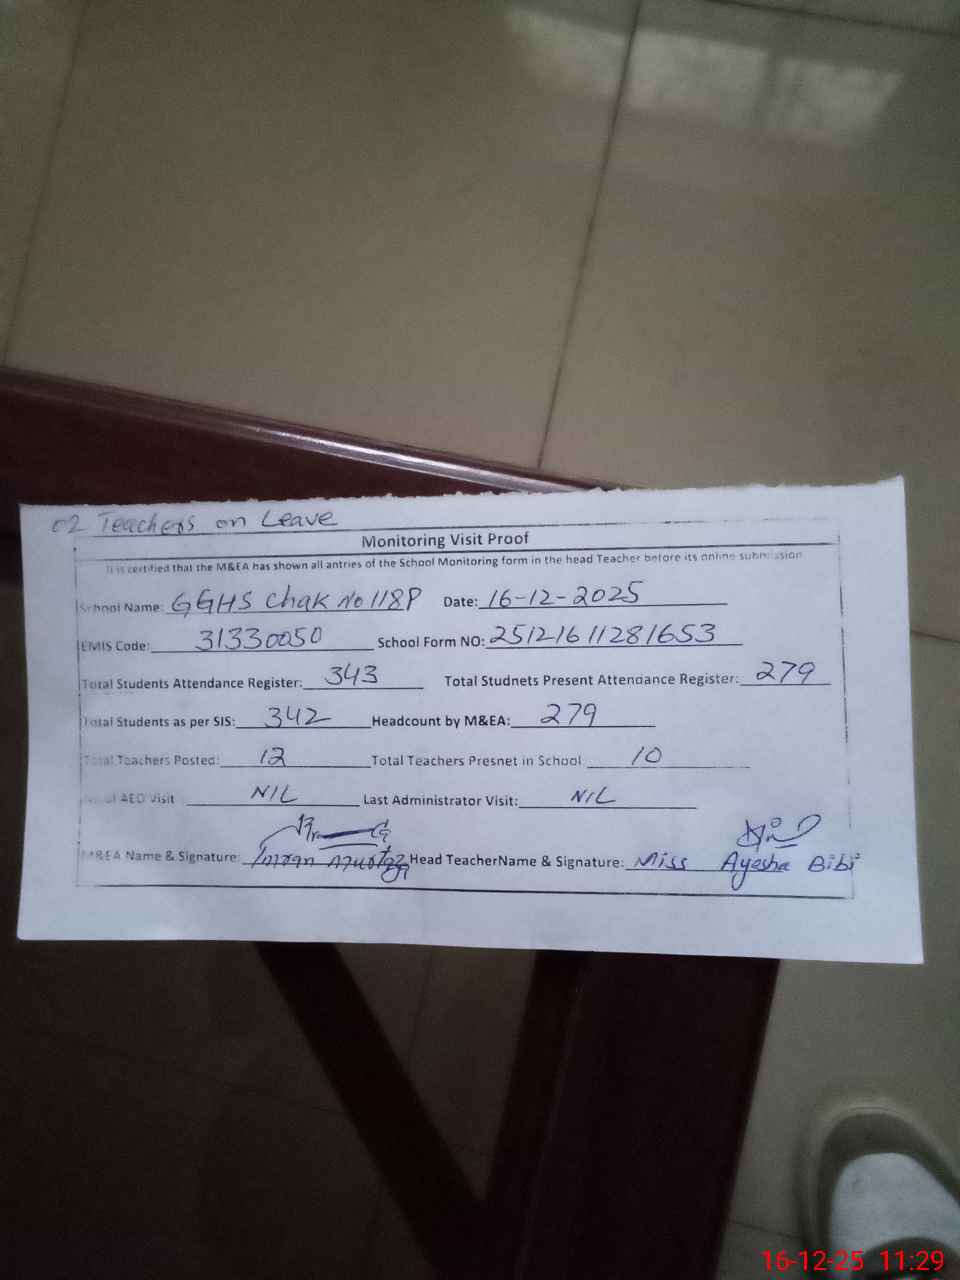 02 Teachers on Leave
Monitoring Visit Proof
It is certified that the M&EA has shown all antries of the School Monitoring form in the head Teacher before its online submission
School Name: GGHS Chak No 118P Date: 16-12-2025
EMIS Code: 31330050 School Form NO: 25121611281653
Total Students Attendance Register: 343 Total Studnets Present Attendance Register: 279
Total Students as per SIS: 342 Headcount by M&EA: 279
Total Teachers Posted: 12 Total Teachers Presnet in School 10
AEO Visit NIL Last Administrator Visit: NIL
M&EA Name & Signature: Imran Head TeacherName & Signature: Miss Ayesha Bibi
16-12-25 11:29